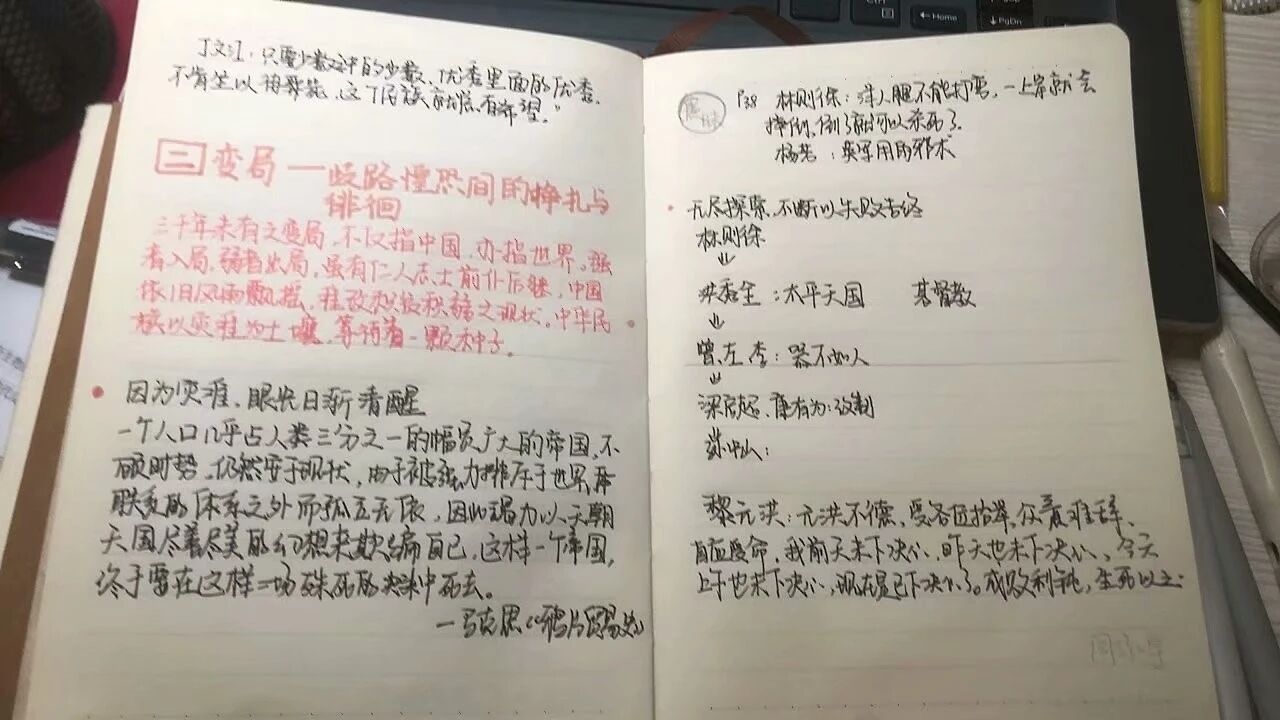 丁文江：只要少数之中的少数、优秀里面的优秀，
不肯坐以待毙，这个民族就怎有希望。”
三 变局 — 歧路惶恐间的挣扎与
徘徊
三千年未有之变局，不仅指中国，亦指世界。强
者入局，弱者出局，虽有仁人志士前仆后继，中国
依旧风雨飘摇，难改积贫积弱之现状。中华民
族以灾难为土壤，等待着一颗种子。
因为灾难，眼光日渐清醒
一个人口几乎占人类三分之一的幅员广大的帝国，不
顾时势，仍然安于现状，由于被强力排斥于世界
联系的体系之外而孤立无依，因此竭力以天朝
天国尽善尽美的幻想来欺骗自己，这样一个帝国，
终于要在这样一场殊死的决斗中死去。
—马克思《鸦片贸易史》
P38 林则徐：洋人腿不能打弯，一上岸就会
摔倒，倒了就可以杀死了。
杨芳：英军用的邪术
无尽探索，不断以失败告终
林则徐
↓
洪秀全：太平天国 基督教
↓
曾、左、李：器不如人
↓
梁启超、康有为：改制
孙中山：
黎元洪：元洪不德，受各位抬举，众意难辞，
自应受命，我前天未下决心，昨天也未下决心，今天
上午也未下决心，现在是已下决心了。成败利钝，生死以之